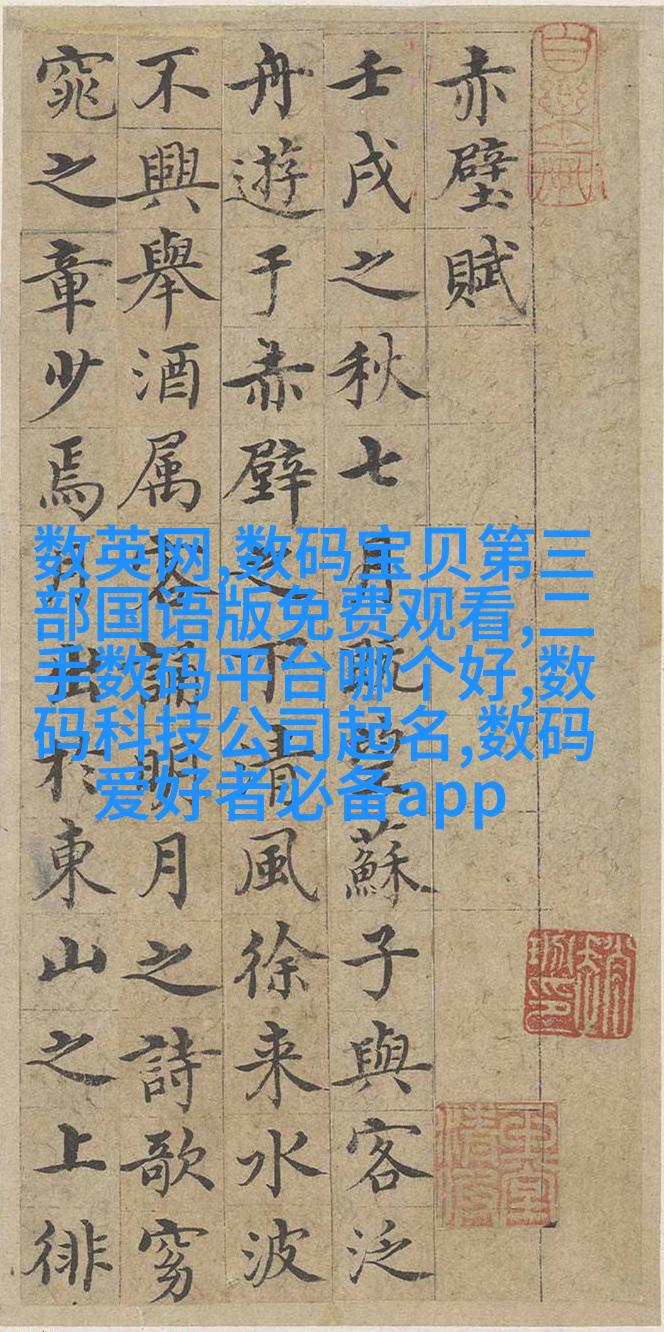 赤壁賦
壬戌之秋七月既望蘇子與客泛
舟遊于赤壁之下清風徐来水波
不興舉酒属客誦明月之詩歌窈
窕之章少焉月出於東山之上徘
数英网,数码宝贝第三
部国语版免费观看,二
手数码平台哪个好,数
码科技公司起名,数码
爱好者必备app